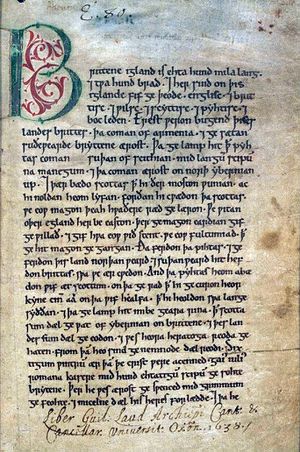 Brittene igland is ehta hund mila lang.
⁊ tƿa hund brad. ⁊ her sind on þis
iglande fif geþeode. englisc. ⁊ brit
tisc. ⁊ ƿilsc. ⁊ scyttisc. ⁊ pyhtisc. ⁊
boc leden. Erest ƿeron bugend þises
landes brittes. þa coman of armenia. ⁊ gesætan
suðeƿearde bryttene ærost. Þa gelamp hit ꝥ pyh
tas coman suþan of scithian. mid langū scipū
na manegum. ⁊ þa coman ærost on norþ ybernian
up. ⁊ þær bædo scottas ꝥ hi ðer moston ƿunian. ac
hi noldan heom lyfan. forðan hi cƿædon þa scottas.
ƿe eoƿ magon þeah hƿaðere ræd gelæron. Ƿe ƿitan
oþer egland her be easton. þer ge magon eardian gif
ge ƿillað. ⁊ gif hƿa eoƿ ƿiðstent. ƿe eoƿ fultumiað. ꝥ
ge hit magon gegangan. Ða ferdon þa pihtas. ⁊ ge
ferdon þis land norþanƿeard. ⁊ suþanƿeard hit hef
don brittas. sƿa ƿe ær cƿedon. And þa pyhtas heom abæ
don ƿif æt scottum. on þa gerad ꝥ hi gecuron heor
kyne cin aa on þa ƿif healfa. ꝥ hi heoldon sƿa lange
syððan. ⁊ þa gelamp hit imbe geara rina. ꝥ scotta
sum dæl geƿat of ybernian on brittene. ⁊ þes lan
des sum dæl geeodon. ⁊ ƿes heora heratoga reoda ge
haten. from þā heo sind genemnode dæl reodi. Six
tigum ƿintrū ær þam þe crist ƿere acenned. gaius iulius
romana kasere mid hund ehtatigū scipū gesohte
brytene. Þer he ƿes ærost gesƿenced mid grimmum
gefeohte. ⁊ micelne dæl his heres forlædde. ⁊ þa he
Liber Guil. Laud Archiepi Cant. &
Cancellar. Universit. Oxōn. 1638.